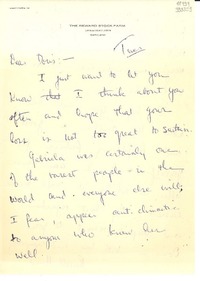 THE REWARD STOCK FARM
Tues
Dear Doris:—
I just want to let you
know that I think about you
often and hope that your
loss is not too great to sustain.
Gabriela was certainly one
of the rarest people in the
world and everyone else will,
I fear, appear anti-climactic
to anyone who knew her
well.